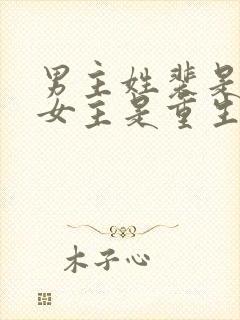 男主姓裴是
女主是重生
木子心